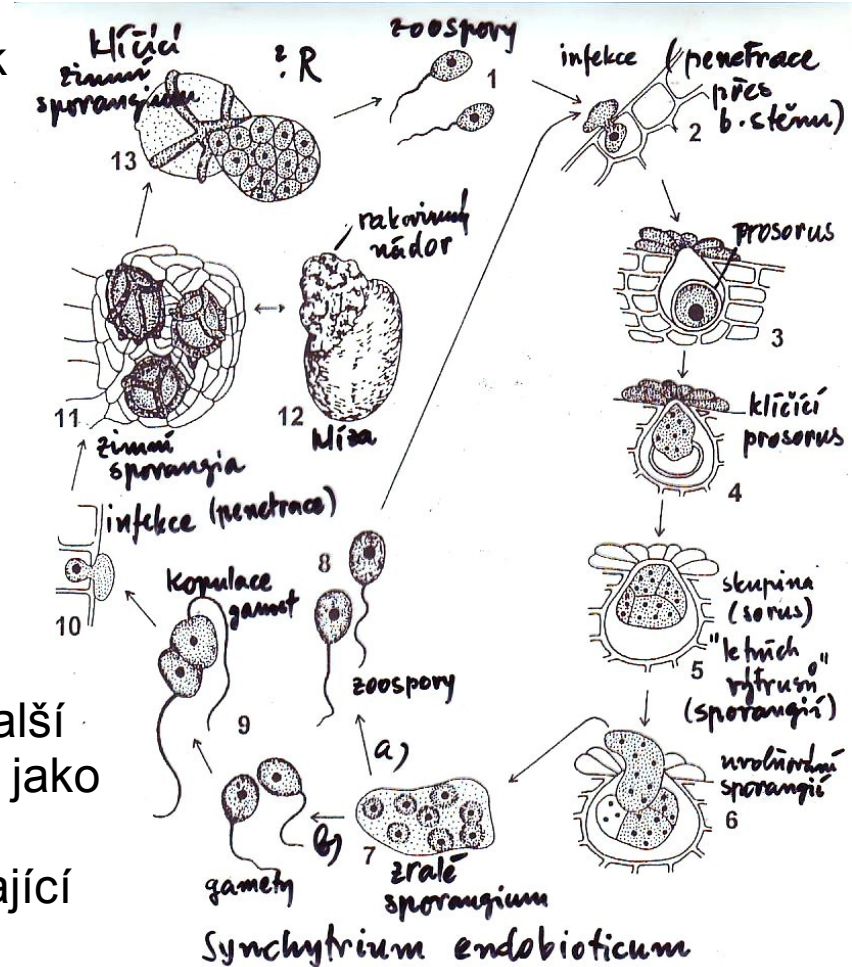 k
klíčící
zimní
sporangium
13
? R
zoospory
1
infekce (penetrace
přes
b. stěnu)
2
prosorus
3
klíčící
prosorus
4
skupina
(sorus)
"letních
výtrusů"
(sporangií)
5
uvolňování
sporangií
6
zralé
sporangium
7
a)
b)
zoospory
8
gamety
kopulace
gamet
9
infekce (penetrace)
10
zimní
sporangia
11
rakovinný
nádor
12
hlíza
alší
jako
ající
Synchytrium endobioticum